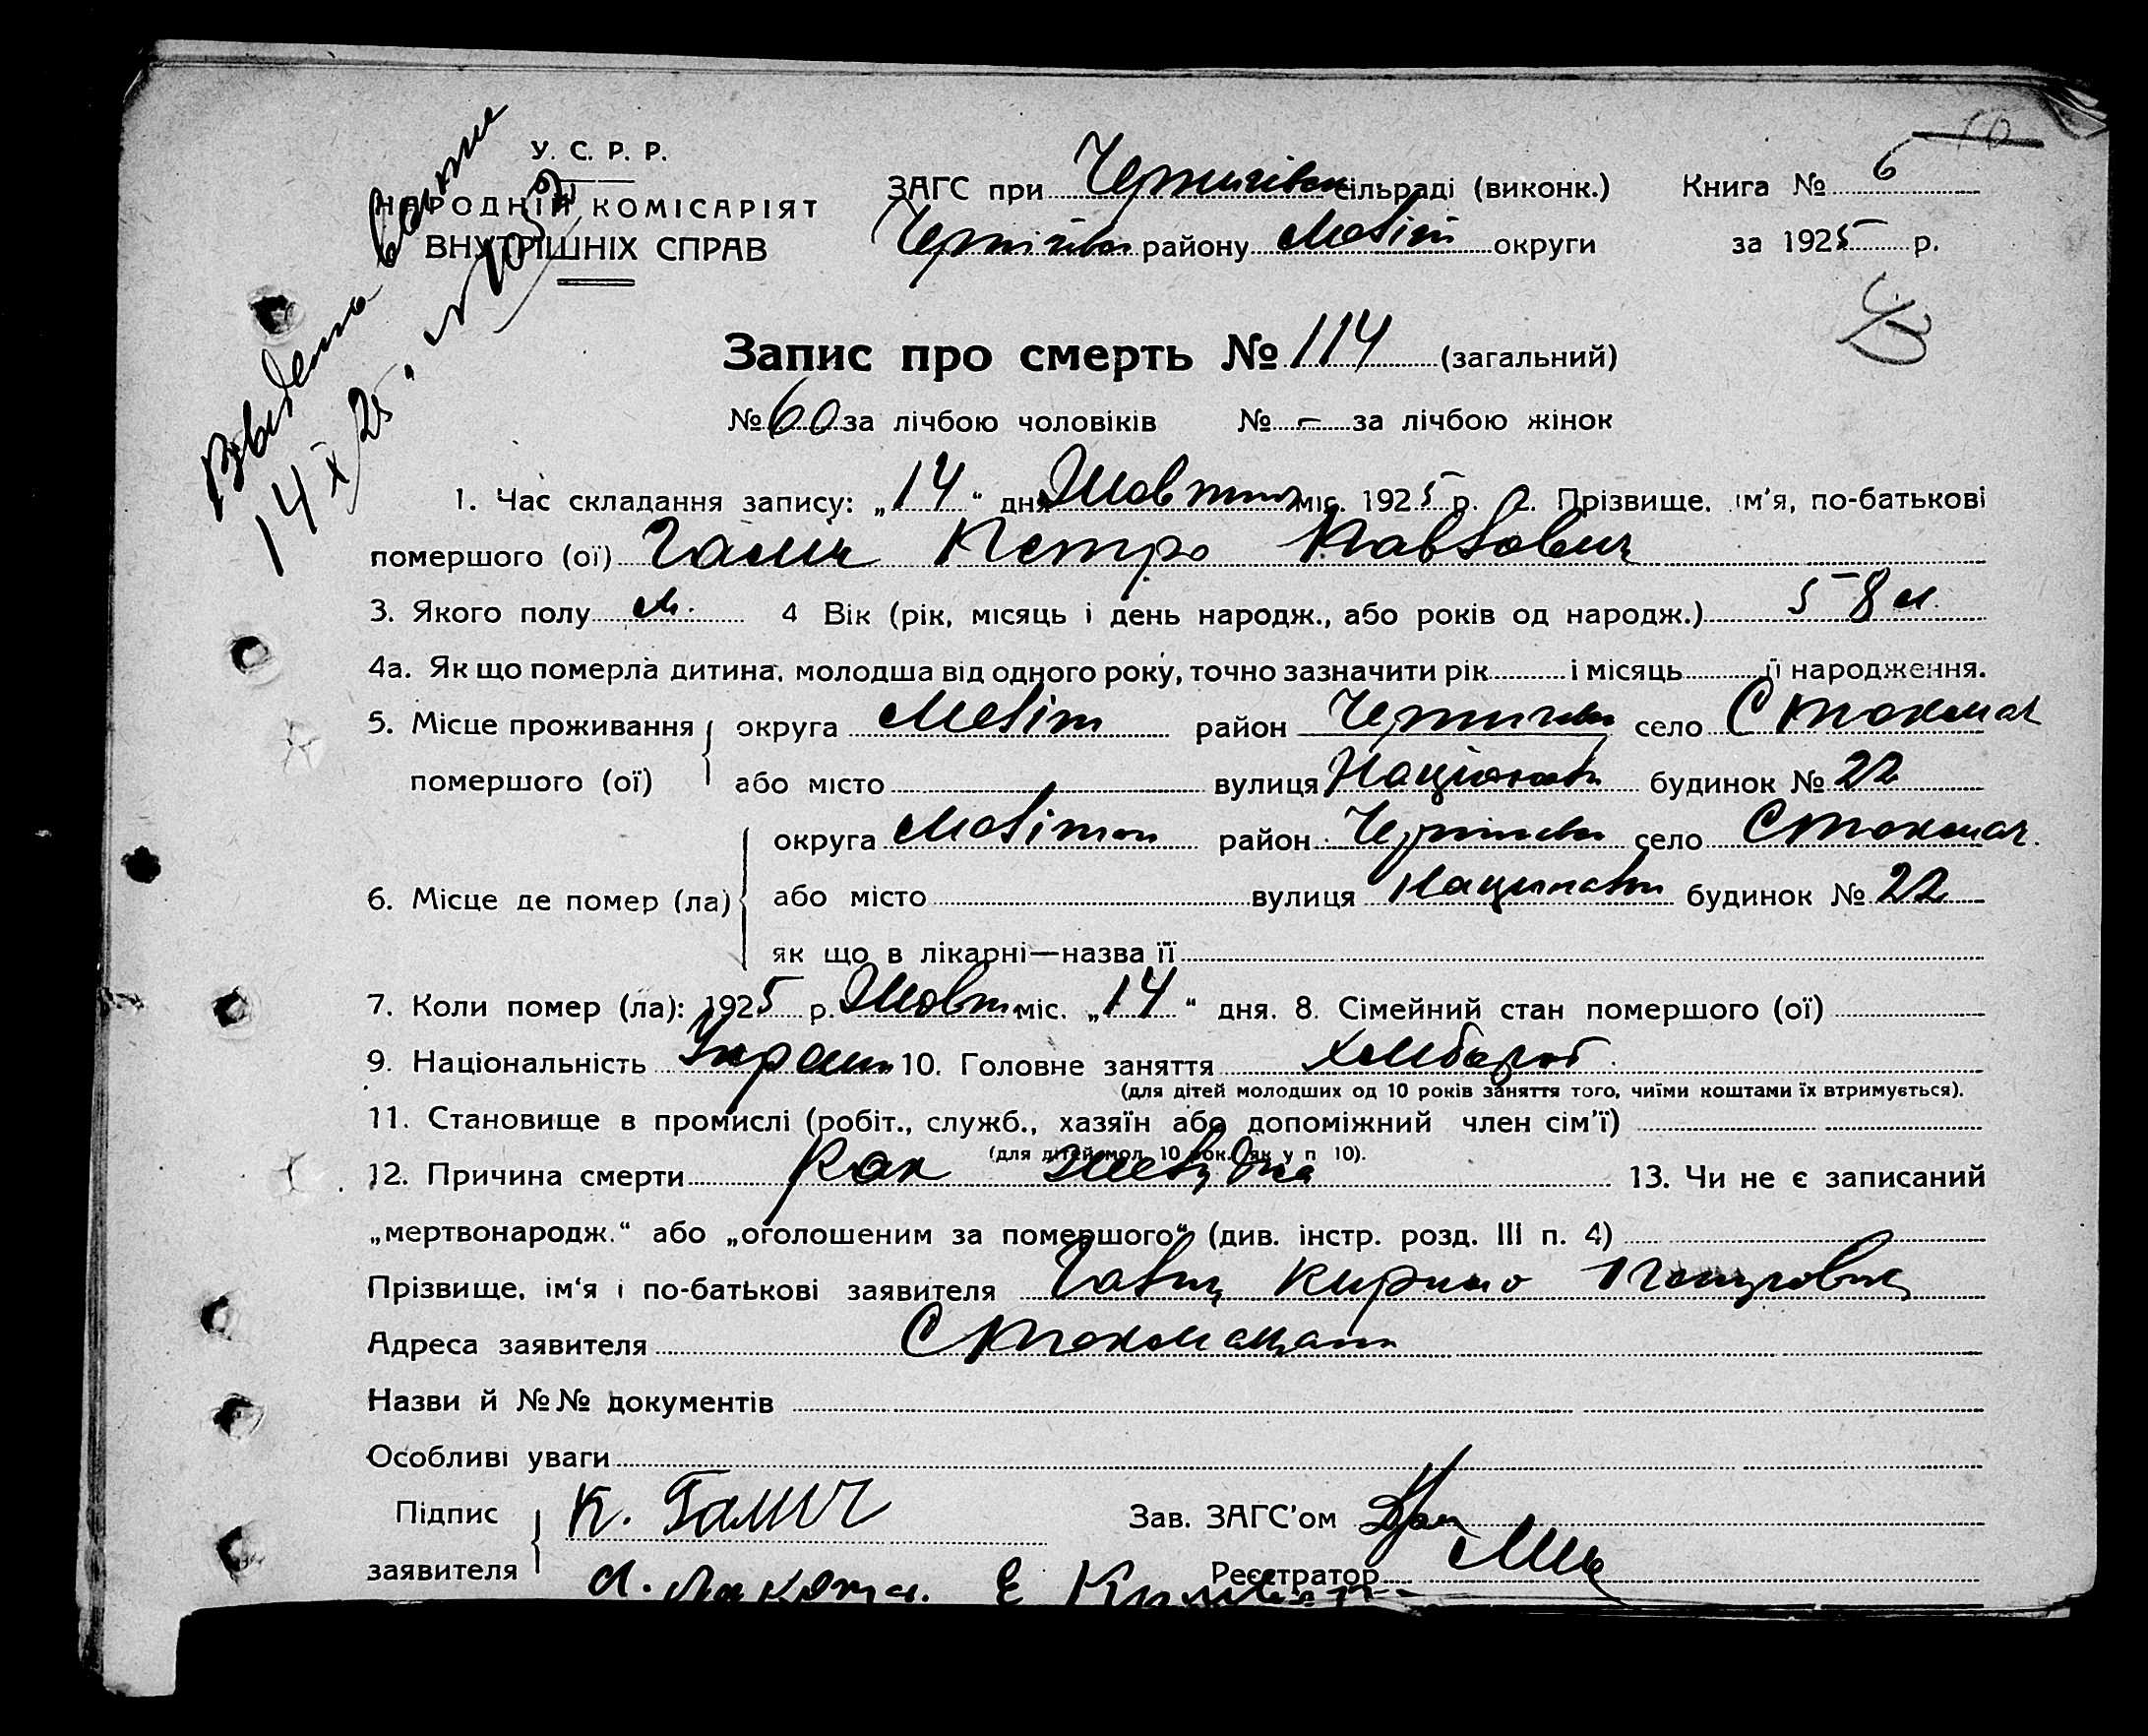 10
У. С. Р. Р.
НАРОДНІЙ КОМІСАРІЯТ
ВНУТРІШНІХ СПРАВ
ЗАГС при Чернігівск сільраді (виконк.) Книга № 6
району Меліт округи за 1925 р.
Запис про смерть № 114 (загальний)
№ 60 за лічбою чоловіків № - за лічбою жінок
14 X 25
1. Час складання запису: „14“ дня Жовтня міс. 1925 р. 2. Прізвище, ім'я, по-батькові
помершого (ої) Галич Петро Павлович
3. Якого полу м. 4 Вік (рік, місяць і день народж., або років од народж.) 58 л.
4а. Як що померла дитина, молодша від одного року, точно зазначити рік і місяць її народження.
5. Місце проживання округа Меліт район село Стокмач
помершого (ої) або місто вулиця будинок № 22
округа район село Стокмач.
6. Місце де помер (ла) або місто вулиця будинок № 22
як що в лікарні—назва її
7. Коли помер (ла): 1925 р. Жовтн міс. „14“ дня. 8. Сімейний стан помершого (ої)
9. Національність 10. Головне заняття хлібороб.
(для дітей молодших од 10 років заняття того, чиїми коштами їх втримується).
11. Становище в промислі (робіт., служб., хазяїн або допоміжний член сім'ї)
(для дітей мол. 10 рок. як у п 10).
12. Причина смерти Рак желудка 13. Чи не є записаний
„мертвонародж.“ або „оголошеним за помершого“ (див. інстр. розд. III п. 4)
Прізвище, ім'я і по-батькові заявителя Галич Кирило Петрович
Адреса заявителя
Назви й №№ документів
Особливі уваги
Підпис К. Галич Зав. ЗАГС'ом
заявителя Реєстратор